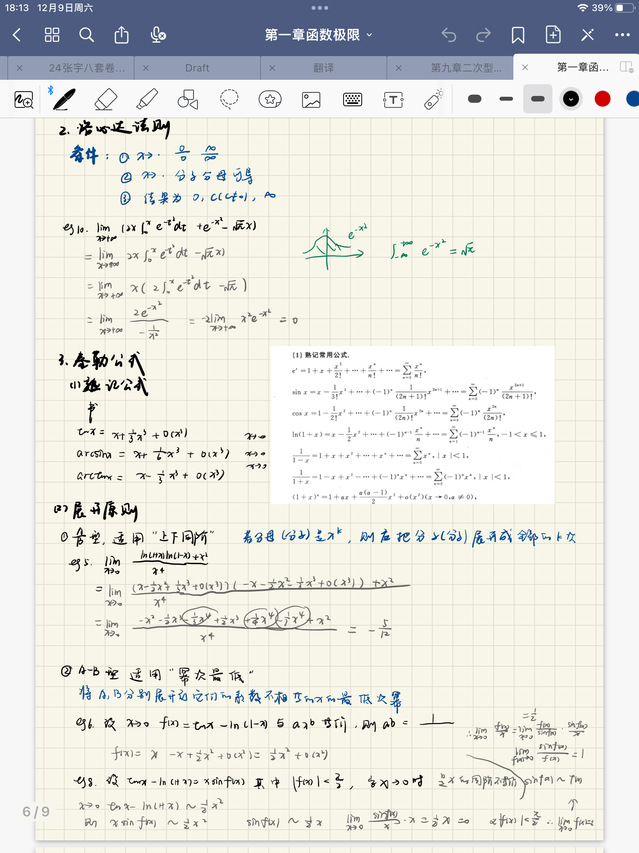 18:13 12月9日周六
39%
第一章函数极限
24张宇八套卷... Draft 翻译 第九章二次型... 第一章函...
2. 洛必达法则
条件: ① x→· 0/0 ∞/∞
② x→· 分子分母可导
③ 结果为 0, c(c≠0), ∞
eg10. lim x→+∞ (2x∫₀ˣ e^{-t²}dt + e^{-x²} - √π x)
= lim x→+∞ 2x∫₀ˣ e^{-t²}dt - √π x
= lim x→+∞ x(2∫₀ˣ e^{-t²}dt - √π)
= lim x→+∞ 2e^{-x²} / -1/x² = -2lim x→+∞ x²e^{-x²} = 0
e^{-x²}
∫_{-∞}^{+∞} e^{-x²} = √π
3. 泰勒公式
(1) 熟记公式
tanx = x+⅓x³+o(x³) x→0
arcsinx = x+⅙x³+o(x³) x→0
arctanx = x-⅓x³+o(x³) x→0
(1) 熟记常用公式.
eˣ=1+x+x²/2!+⋯+xⁿ/n!+⋯=∑_{n=0}^{∞} xⁿ/n!,
sin x=x-1/3! x³+⋯+(-1)ⁿ 1/(2n+1)! x^{2n+1}+⋯=∑_{n=0}^{∞}(-1)ⁿ x^{2n+1}/(2n+1)!,
cos x=1-1/2! x²+⋯+(-1)ⁿ 1/(2n)! x^{2n}+⋯=∑_{n=0}^{∞}(-1)ⁿ x^{2n}/(2n)!,
ln(1+x)=x-½x²+⋯+(-1)^{n-1} xⁿ/n+⋯=∑_{n=1}^{∞}(-1)^{n-1} xⁿ/n,-1<x≤1,
1/(1-x)=1+x+x²+⋯+xⁿ+⋯=∑_{n=0}^{∞}xⁿ,|x|<1,
1/(1+x)=1-x+x²-⋯+(-1)ⁿxⁿ+⋯=∑_{n=0}^{∞}(-1)ⁿxⁿ,|x|<1,
(1+x)^a=1+ax+a(a-1)/2 x²+o(x²)(x→0,a≠0),
(2) 展开原则
① A/B型, 适用"上下同阶" 若分母(分子)是xᵏ, 则应把分子(分母)展开成x的k次
eg5. lim x→0 (ln(1+x)ln(1-x)+x²)/x⁴
= lim x→0 ((x-½x²+⅓x³+o(x³))(-x-½x²-⅓x³+o(x³))+x²)/x⁴
= lim x→0 (-x²-½x³-⅓x⁴+½x³+¼x⁴-⅓x⁴+x²)/x⁴ = -5/12
② A-B型 适用"幂次最低"
将A,B分别展开到它们的系数不相等的x的最低次幂
eg6. 设x→0 f(x)=tanx-ln(1-x)与axᵇ等价, 则ab= 1
f(x)= x -x+½x²+o(x²)=½x²+o(x²)
eg8. 设 tanx-ln(1+x)=x sinf(x) 其中 |f(x)|<π/2, 当x→0时
x→0 tanx-ln(1+x)~½x²
即 x sinf(x)~½x² sinf(x)~½x lim x→0 sinf(x)/x ·x=½x=0 又|f(x)|<π/2 ∴lim x→0 f(x)=0
sinf(x)~f(x)
=½
∴lim x→0 f(x)/x=lim x→0 f(x)/sinf(x) · sinf(x)/x
lim f(x)→0 sinf(x)/f(x)=1
6 / 9